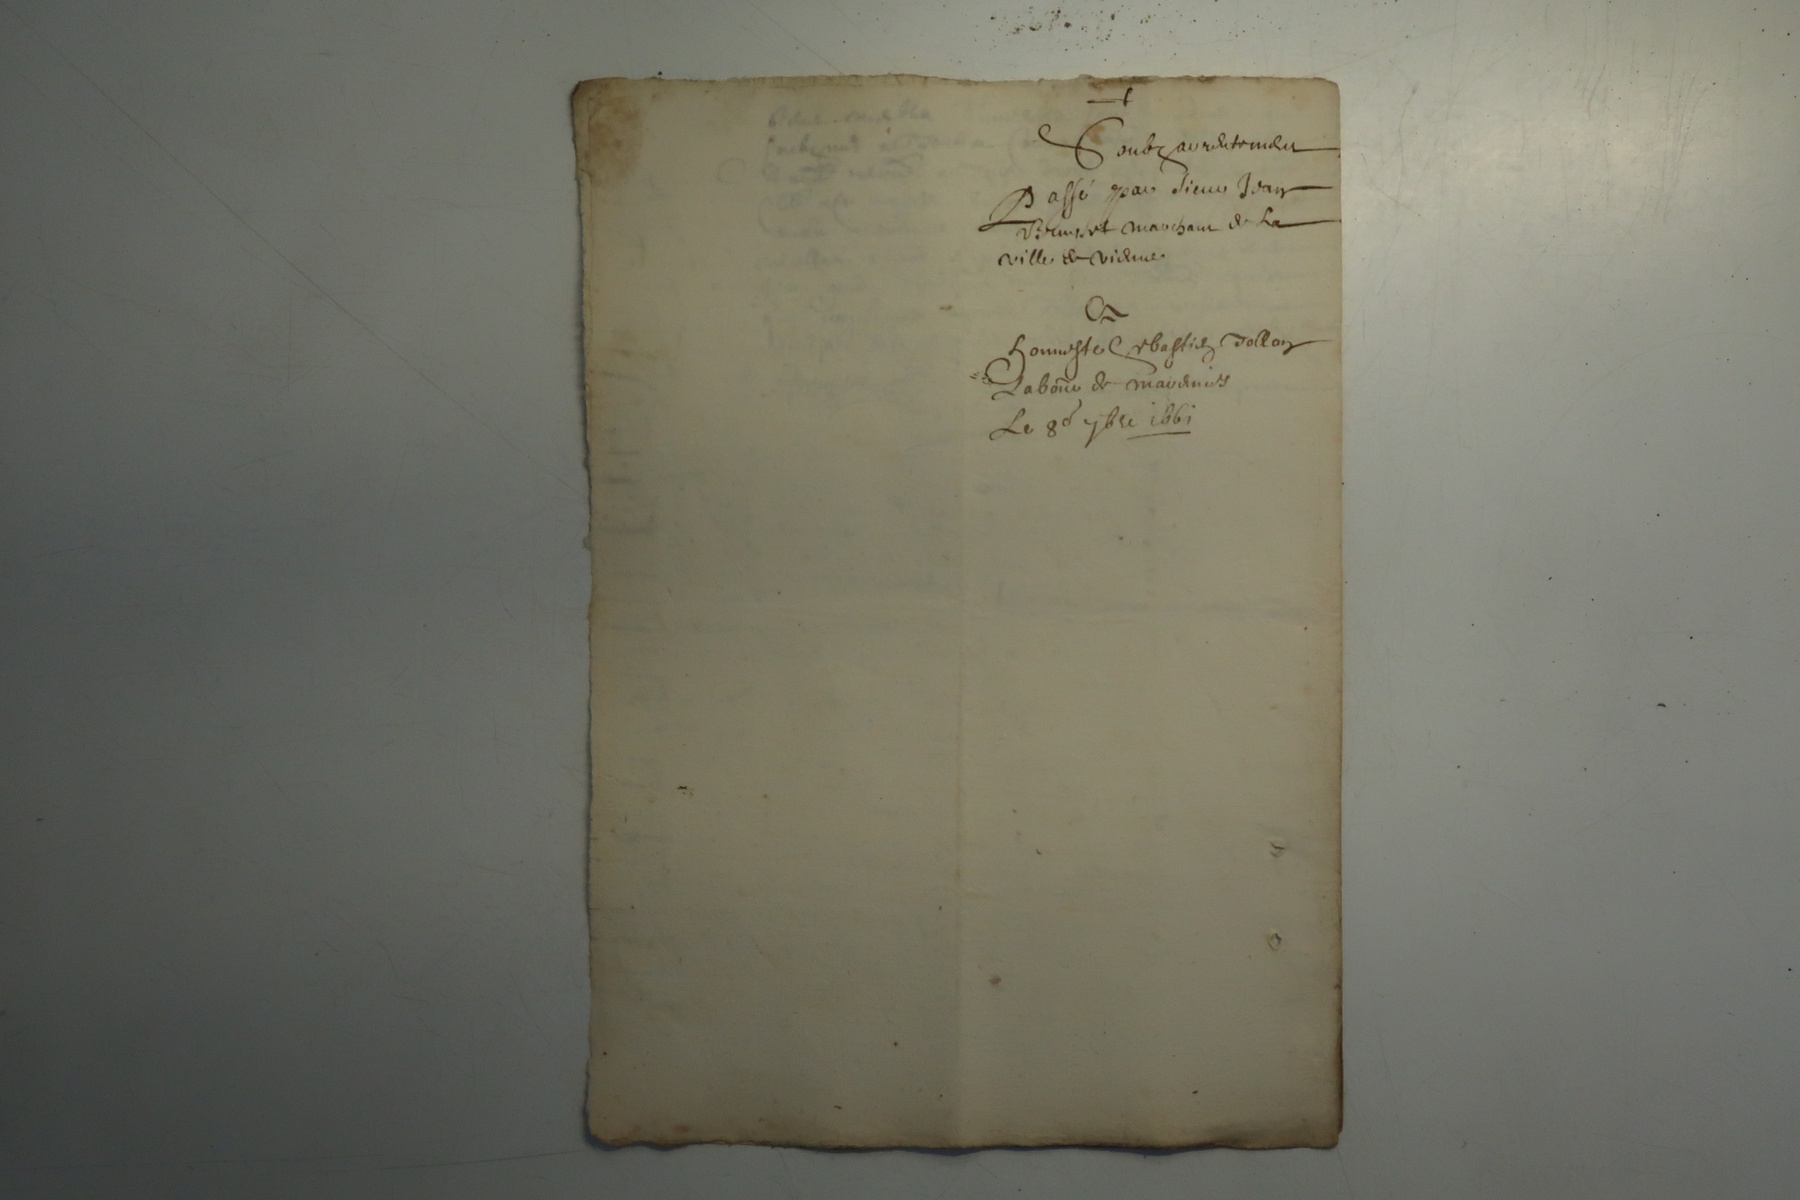 Soubz arrentement
Passé par Sieur Jean
marchant de La
ville de vienne
A
honneste Sebastien Tollon
Laboure de
Le 8e 7bre 1661